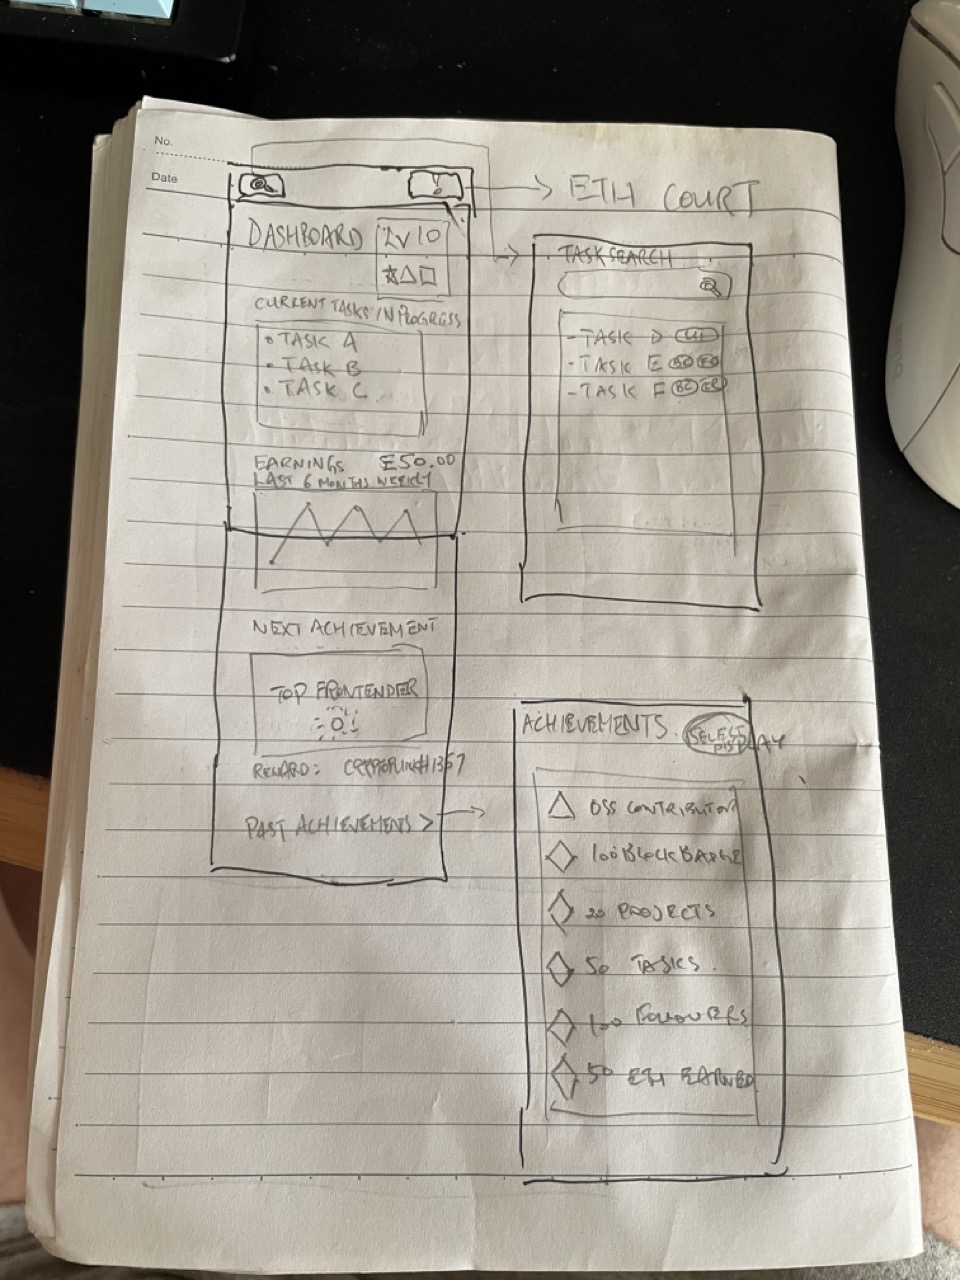 No.
Date
! → ETH COURT
DASHBOARD
LV 10
CURRENT TASKS IN PROGRESS
• TASK A
• TASK B
• TASK C
EARNINGS £50.00
LAST 6 MONTHS WEEKLY
NEXT ACHIEVEMENT
TOP FRONTENDER
REWARD:
PAST ACHIEVEMENTS >
TASK SEARCH
- TASK D
- TASK E
- TASK F
ACHIEVEMENTS
SELECT
DISPLAY
OSS CONTRIBUTOR
100 BLOCK BADGE
20 PROJECTS
50 TASKS
100
50 ETH EARNED